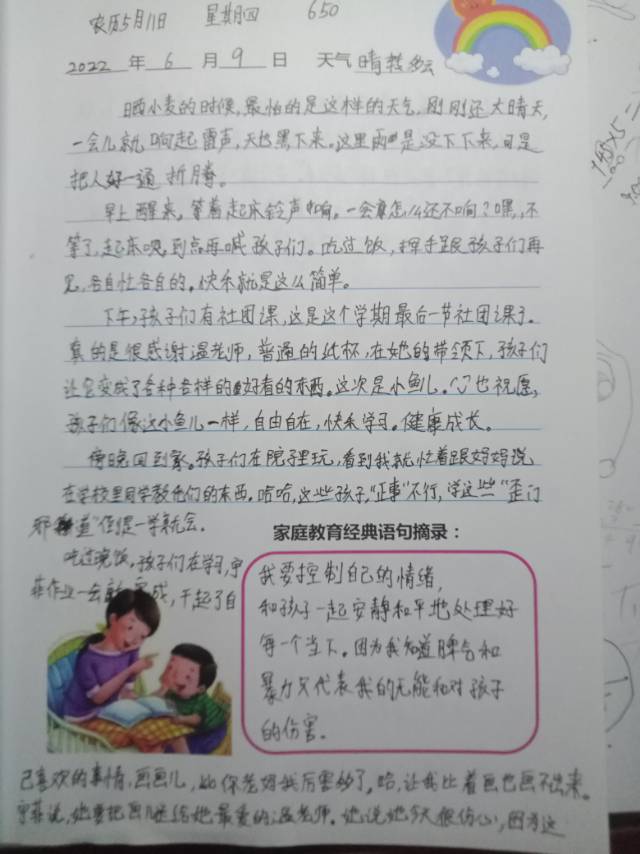 农历5月11日 星期四 650
2022 年 6 月 9 日 天气 晴转多云
晒小麦的时候,最怕的是这样的天气,刚刚还大晴天,
一会儿就响起雷声,天也黑下来。这里雨是没下下来,可是
把人好一通折腾。
早上醒来,等着起床铃声响。一会真怎么还不响?嘿,不
等了,起床吧,到点再喊孩子们。吃过饭,挥手跟孩子们再
见,各自忙各自的。快乐就是这么简单。
下午,孩子们有社团课,这是这个学期最后一节社团课了。
真的是很感谢温老师,普通的纸杯,在她的带领下,孩子们
让它变成了各种各样的好看的东西。这次是小鱼儿。也祝愿,
孩子们像这小鱼儿一样,自由自在,快乐学习。健康成长。
傍晚回到家。孩子们在院子里玩,看到我就忙着跟妈妈说
在学校里同学教他们的东西。哈哈,这些孩子,"正事"不行,学这些"歪门
邪道"但是一学就会。
家庭教育经典语句摘录:
吃过晚饭。孩子们在学习,宁
菲作业一会就完成,干起了自
我要控制自己的情绪,
和孩子一起安静和平地处理好
每一个当下。因为我知道脾气和
暴力只代表我的无能和对孩子
的伤害。
己喜欢的事情,画画儿,比你老妈我厉害多了。哈,让我比着画也画不出来。
宁菲说,她要把画儿送给她最爱的温老师。她说她今天很伤心,因为这